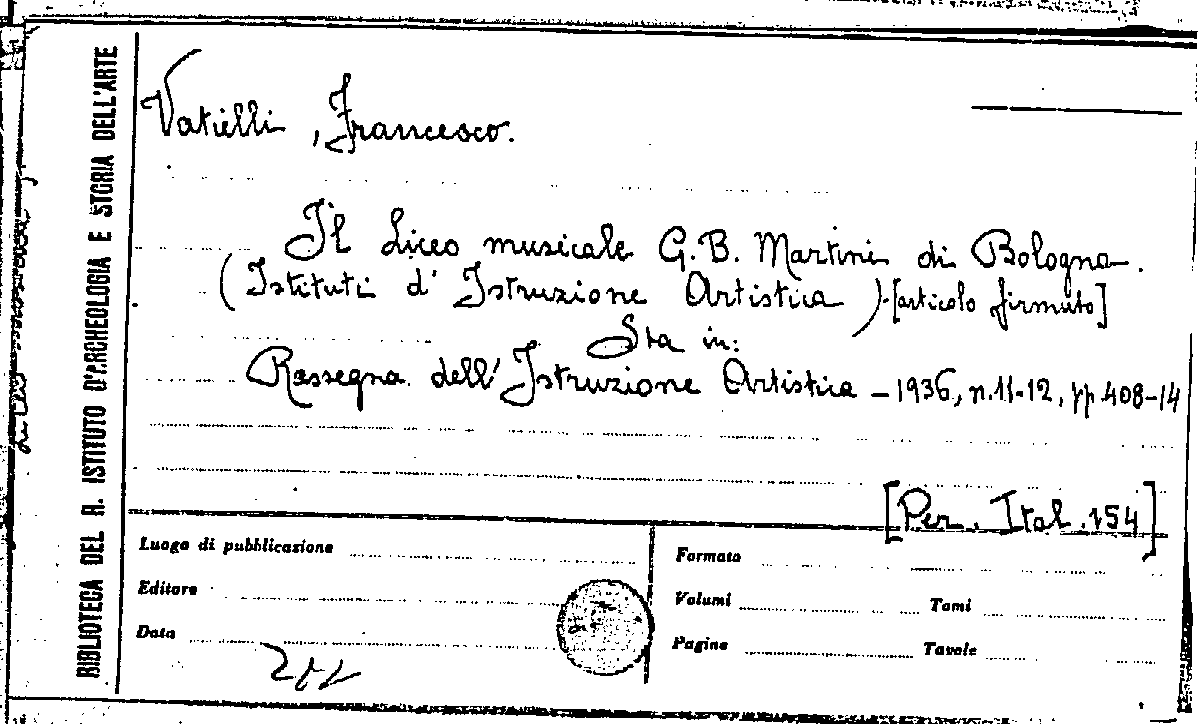 BIBLIOTECA DEL R. ISTITUTO D'ARCHEOLOGIA E STORIA DELL'ARTE
Vatielli, Francesco.
Il Liceo musicale G.B. Martini di Bologna.
(Istituti d'Istruzione Artistica). [articolo firmato]
Sta in:
Rassegna dell'Istruzione Artistica - 1936, n.11-12, pp 408-14
[Per. Ital. 154]
Luogo di pubblicazione
Editore
Data
Formato
Volumi Tomi
Pagine Tavole